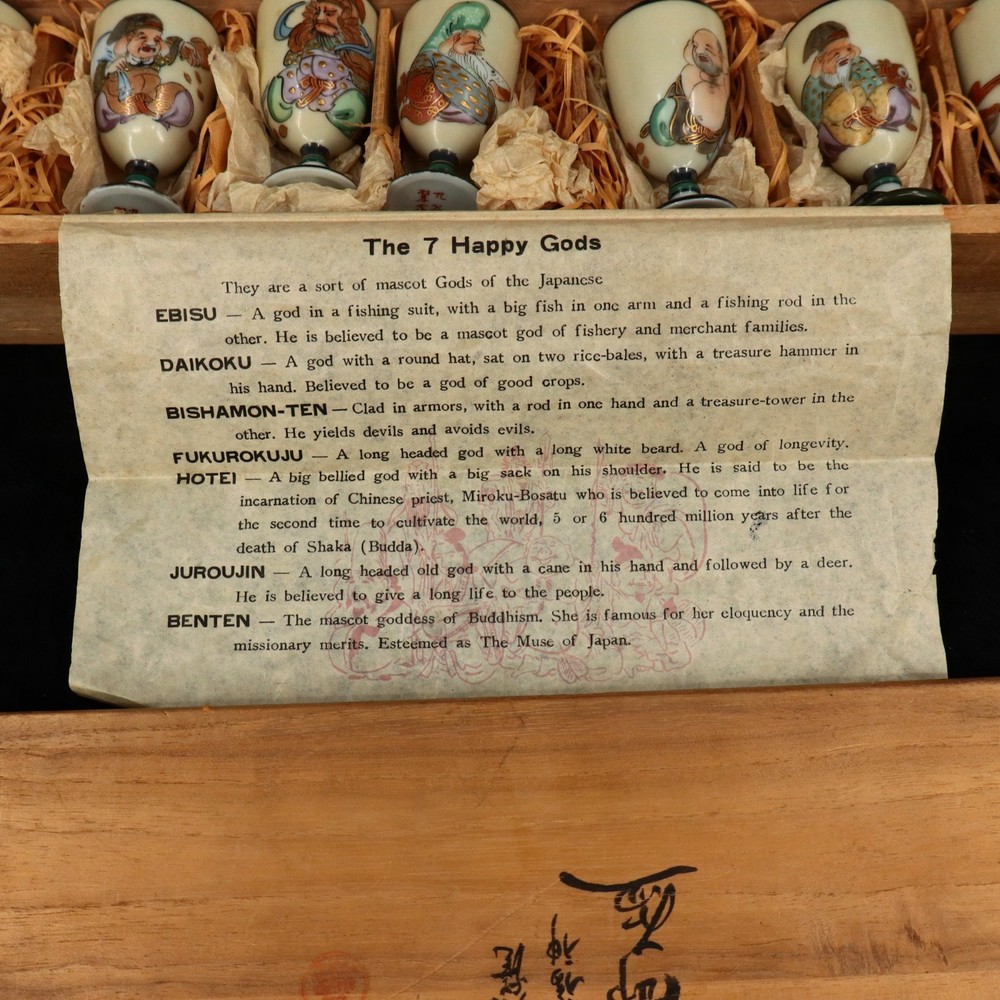 The 7 Happy Gods
They are a sort of mascot Gods of the Japanese
EBISU — A god in a fishing suit, with a big fish in one arm and a fishing rod in the
other. He is believed to be a mascot god of fishery and merchant families.
DAIKOKU — A god with a round hat, sat on two rice-bales, with a treasure hammer in
his hand. Believed to be a god of good crops.
BISHAMON-TEN — Clad in armors, with a rod in one hand and a treasure-tower in the
other. He yields devils and avoids evils.
FUKUROKUJU — A long headed god with a long white beard. A god of longevity.
HOTEI — A big bellied god with a big sack on his shoulder. He is said to be the
incarnation of Chinese priest, Miroku-Bosatu who is believed to come into life for
the second time to cultivate the world, 5 or 6 hundred million years after the
death of Shaka (Budda).
JUROUJIN — A long headed old god with a cane in his hand and followed by a deer.
He is believed to give a long life to the people.
BENTEN — The mascot goddess of Buddhism. She is famous for her eloquency and the
missionary merits. Esteemed as The Muse of Japan.